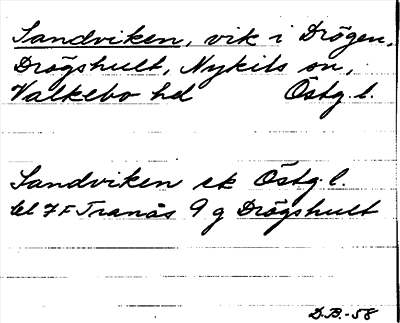 Sandviken, vik i Drögen,
Drögshult, Nykils sn,
Valkebo hd Östg. l.
Sandviken ek Östg. l.
bl 7 F Tranås 9 g Drögshult
D.B.-58